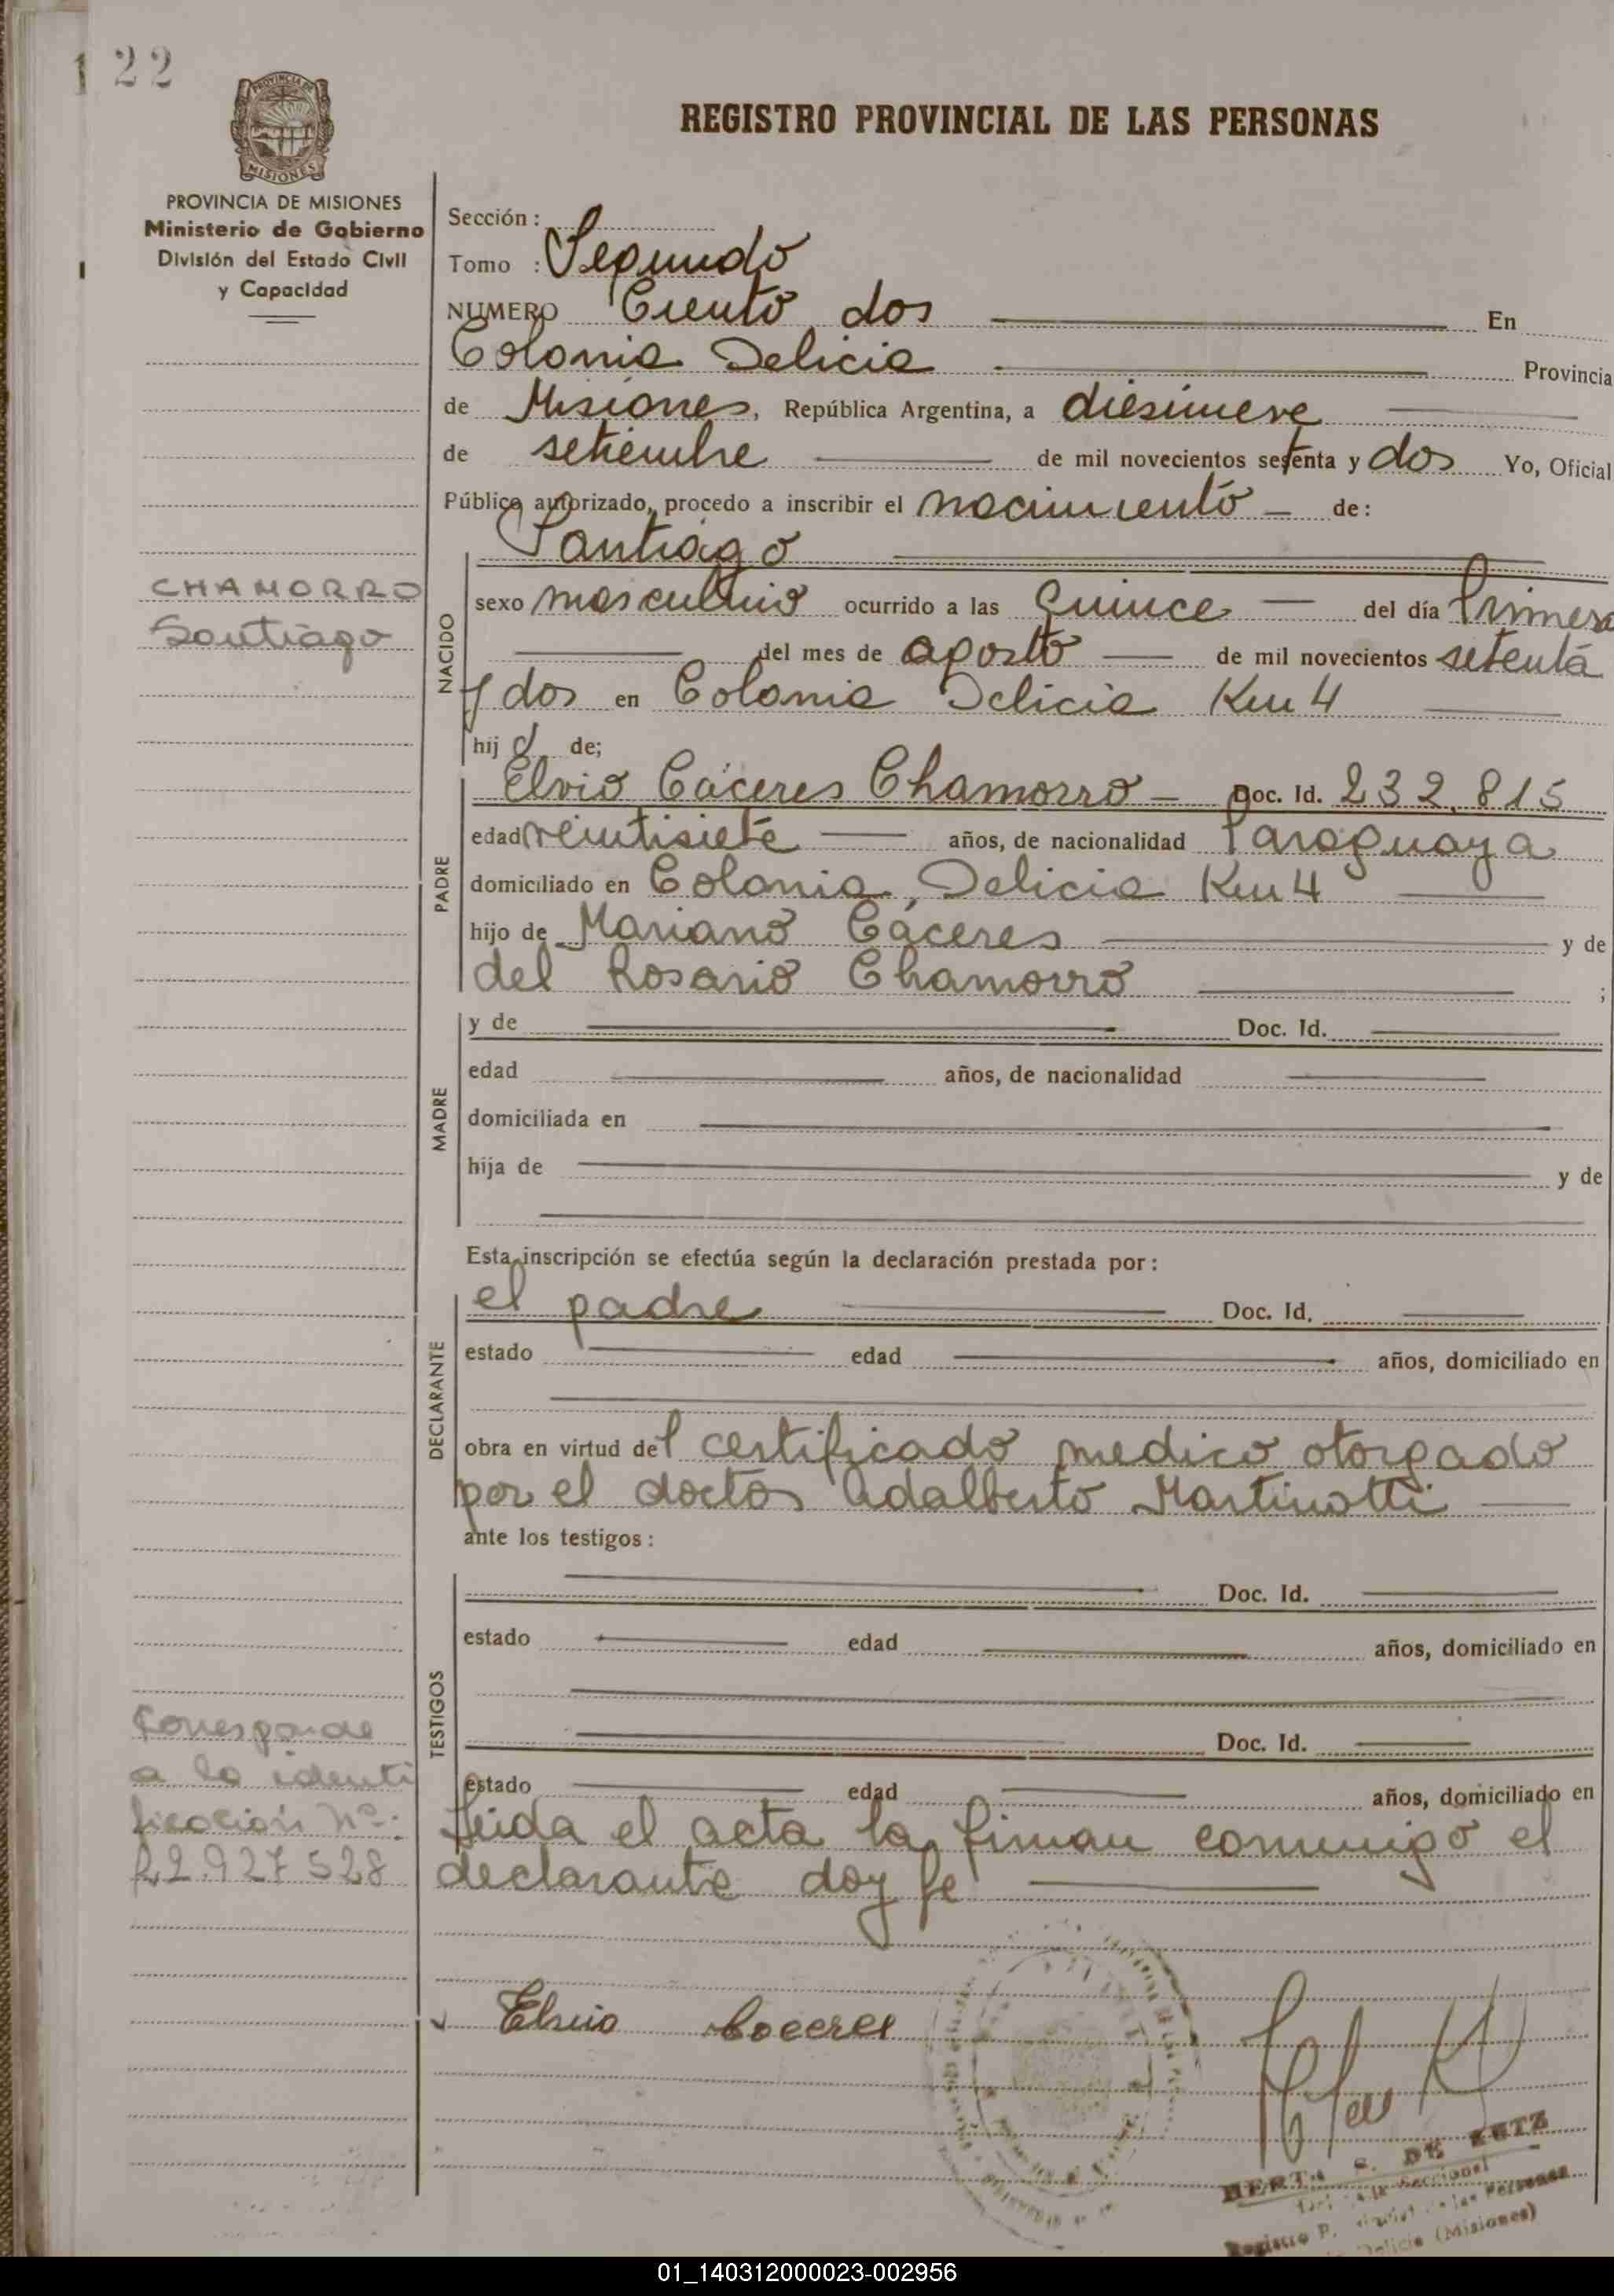 1 22
MISIONES
REGISTRO PROVINCIAL DE LAS PERSONAS
PROVINCIA DE MISIONES
Ministerio de Gobierno
División del Estado Civil
y Capacidad
CHAMORRO
Santiago
Corresponde
a la identi
ficación Nº:
22.927528
Sección:
Tomo : Segundo
NUMERO Ciento dos En
Colonia Delicia Provincia
de Misiones, República Argentina, a diesinueve
de setiembre de mil novecientos setenta y dos Yo, Oficial
Público autorizado, procedo a inscribir el nacimiento de:
Santiago
NACIDO
sexo masculino ocurrido a las quince del día Primero
del mes de agosto de mil novecientos setenta
y dos en Colonia Delicia Km 4
hijo de;
PADRE
Elvio Cáceres Chamorro Doc. Id. 232.815
edad veintisiete años, de nacionalidad Paraguaya
domiciliado en Colonia Delicia Km 4
hijo de Mariano Cáceres y de
del Rosario Chamorro ;
MADRE
y de Doc. Id.
edad años, de nacionalidad
domiciliada en
hija de y de
Esta inscripción se efectúa según la declaración prestada por:
DECLARANTE
el padre Doc. Id.
estado edad años, domiciliado en
obra en virtud del certificado medico otorgado
por el doctor Adalberto Martinotti
ante los testigos:
TESTIGOS
Doc. Id.
estado edad años, domiciliado en
Doc. Id.
estado edad años, domiciliado en
Leida el acta la firman conmigo el
declarante doy fe
Elvio Caceres
DE KETZ
(Misiones)
01_140312000023-002956